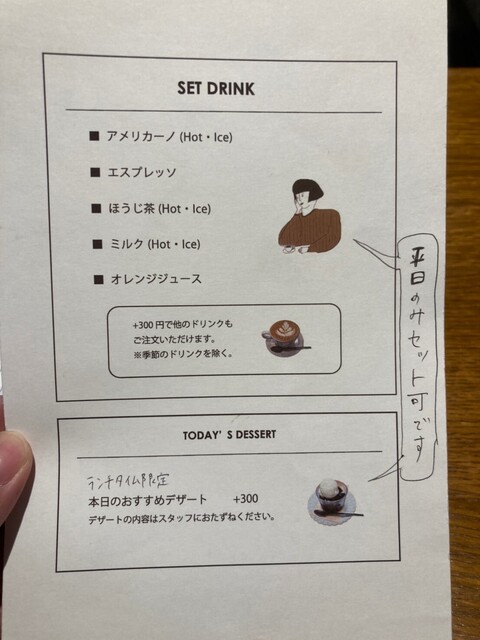 SET DRINK
■ アメリカーノ (Hot・Ice)
■ エスプレッソ
■ ほうじ茶 (Hot・Ice)
■ ミルク (Hot・Ice)
■ オレンジジュース
+300 円で他のドリンクも
ご注文いただけます。
※季節のドリンクを除く。
平日のみセット可です
TODAY' S DESSERT
ランチタイム限定
本日のおすすめデザート +300
デザートの内容はスタッフにおたずねください。